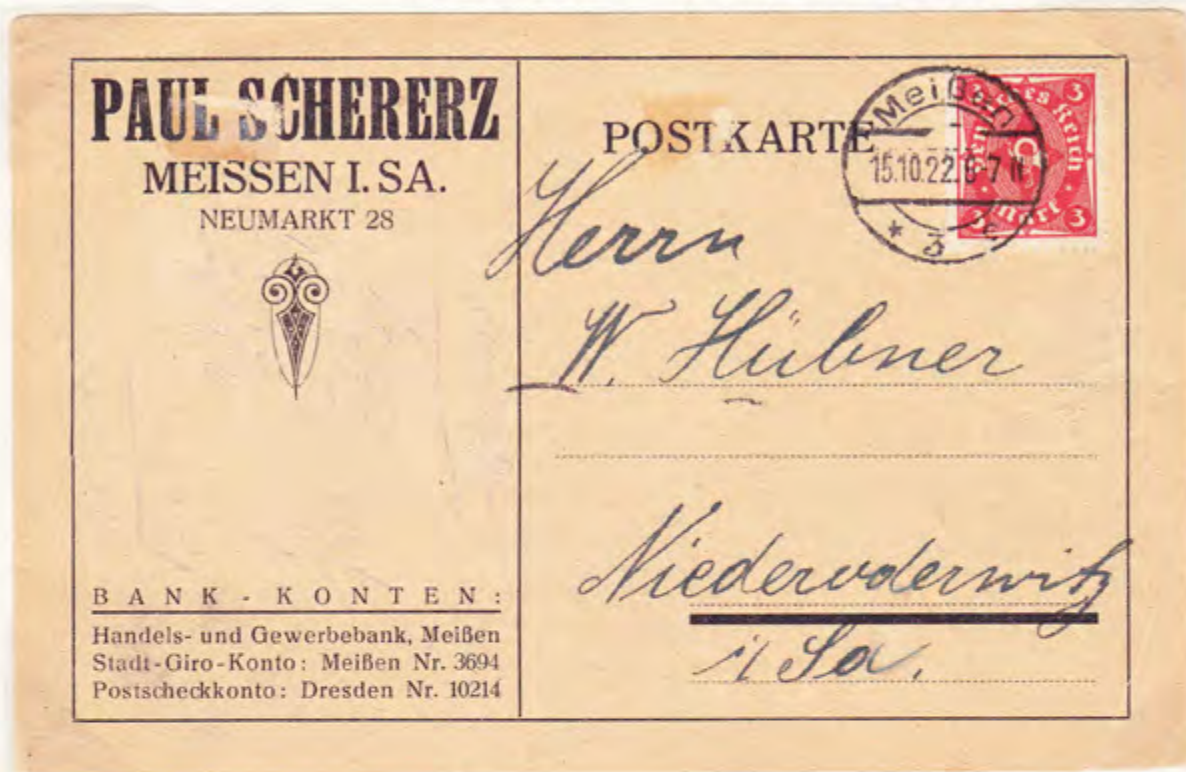 PAUL SCHERERZ
MEISSEN I. SA.
NEUMARKT 28
BANK-KONTEN:
Handels- und Gewerbebank, Meißen
Stadt-Giro-Konto: Meißen Nr. 3694
Postscheckkonto: Dresden Nr. 10214
POSTKARTE
Meißen
15.10.22. 6-7 N
* 3 c
3 3
Deutsches Reich
Mark
3 3
Herrn
W. Hübner
Niederoderwitz
i/ Sa.